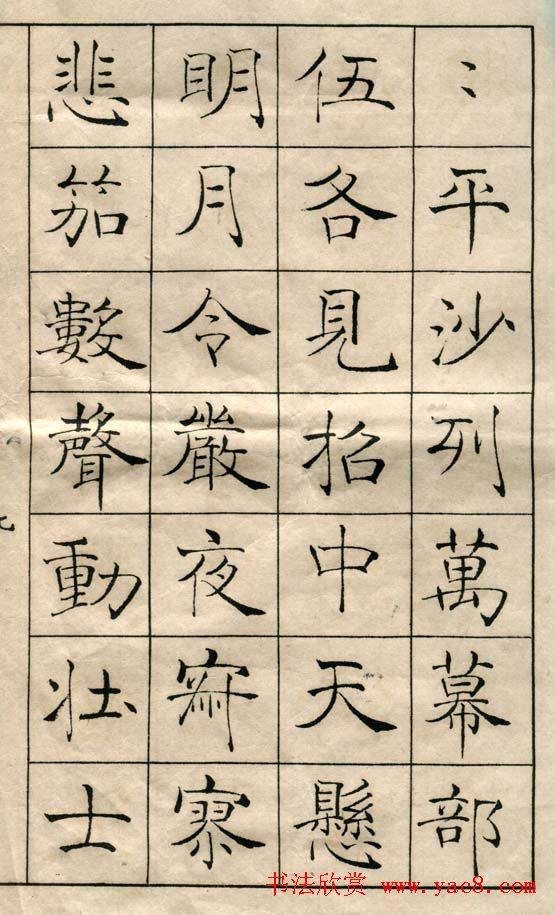 〻平沙列萬幕部
伍各見招中天懸
眀月令嚴夜寂寥
悲笳數聲動壯士
书法欣赏 www.yac8.com